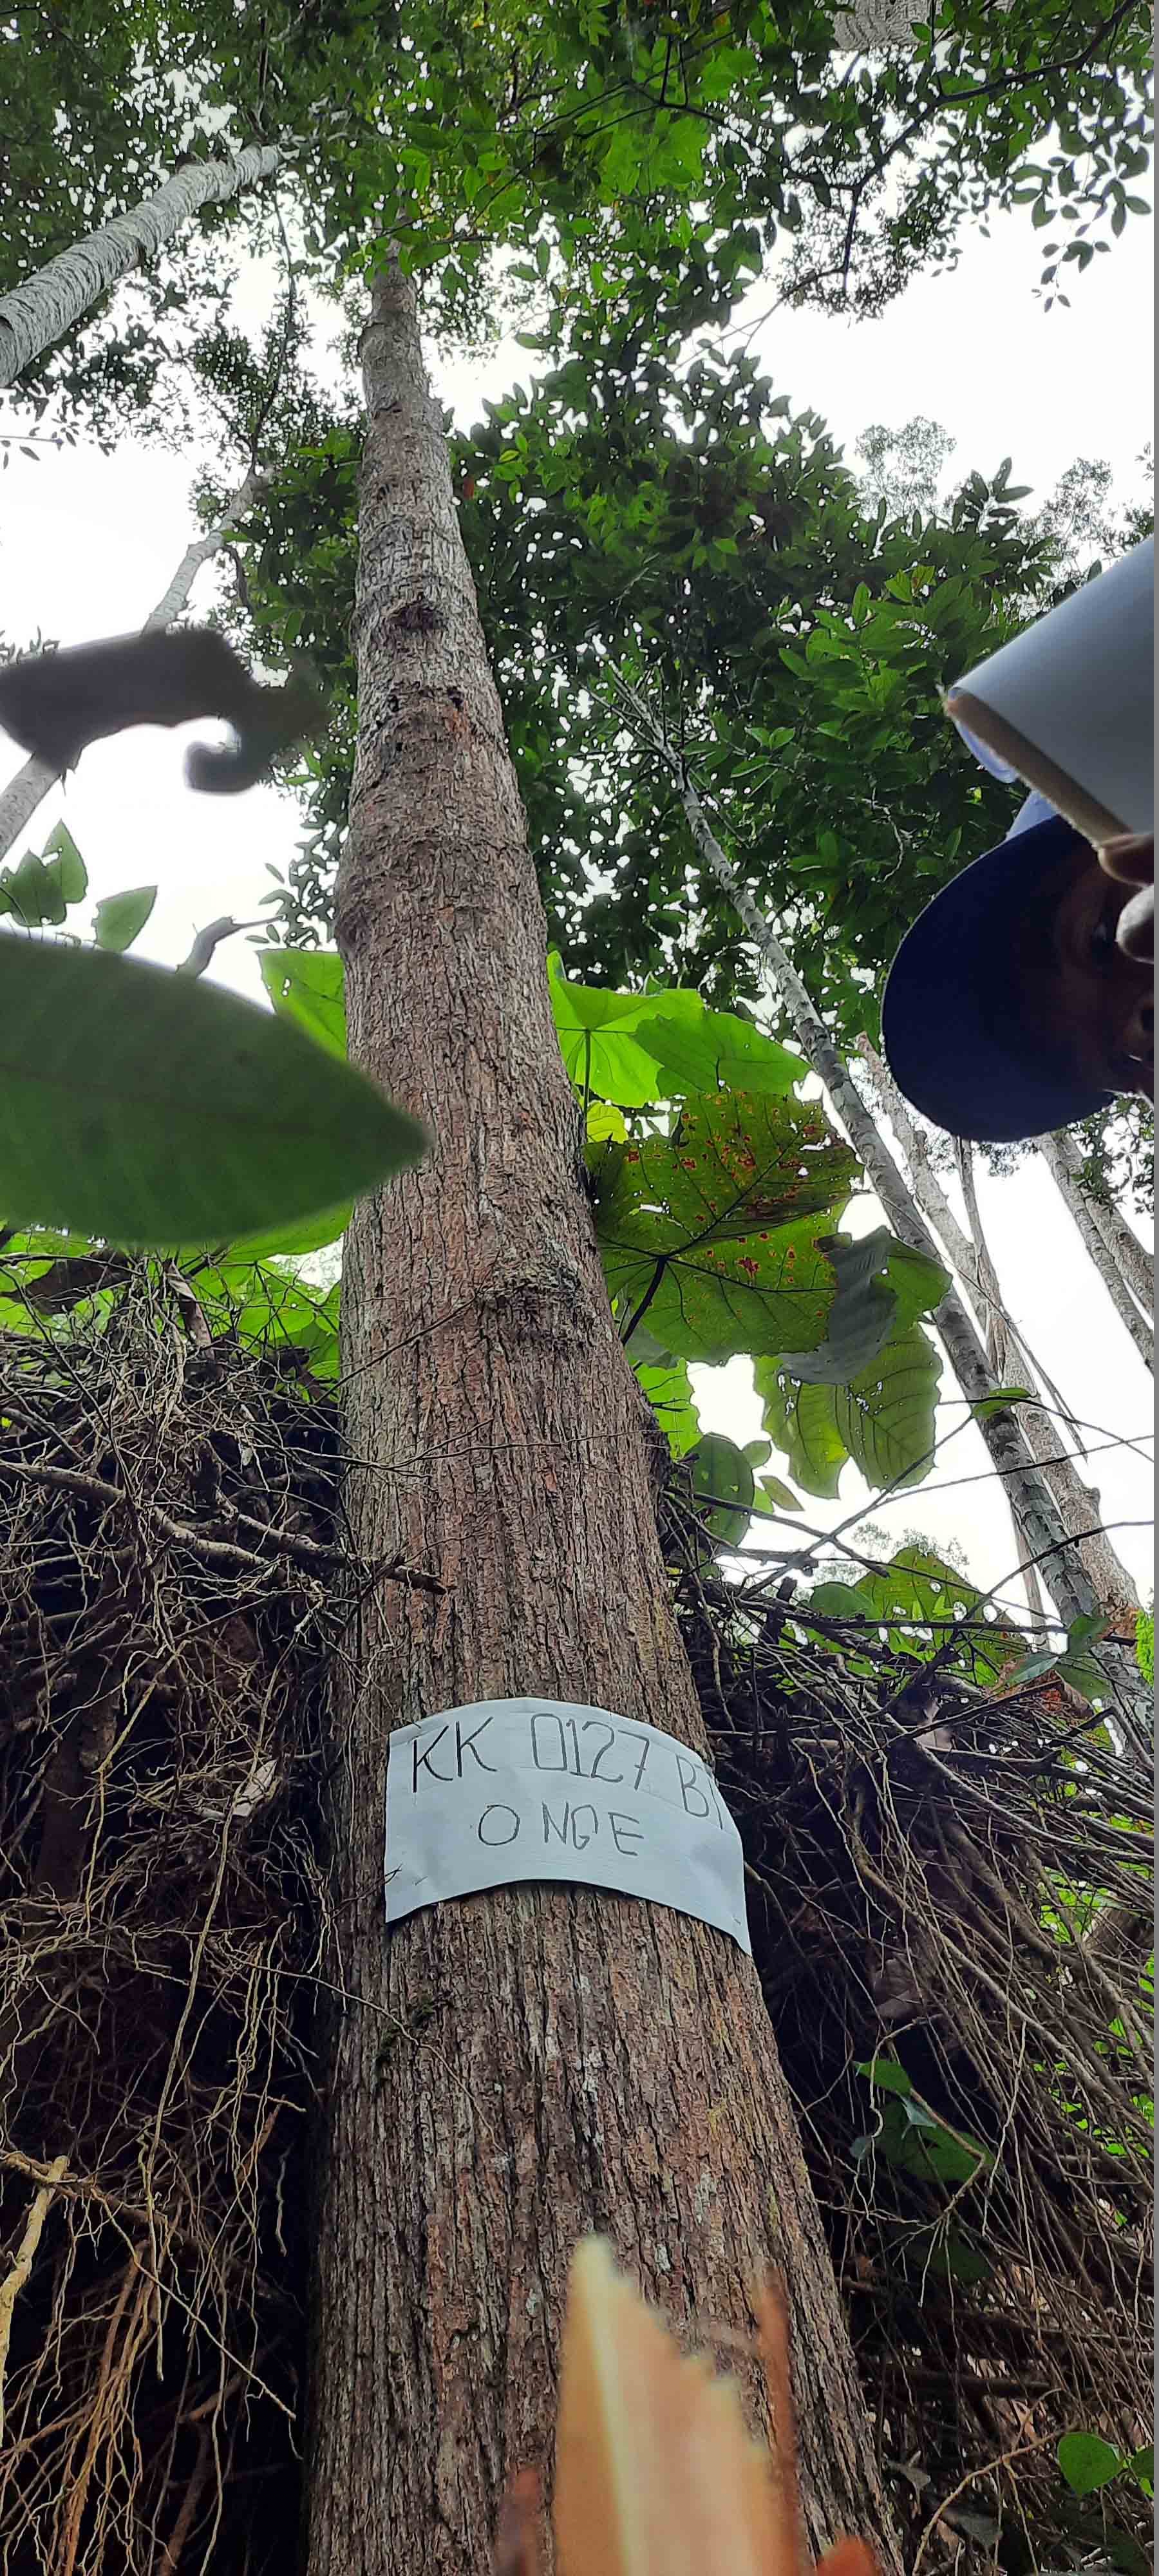 KK 0127 BT
ONGE